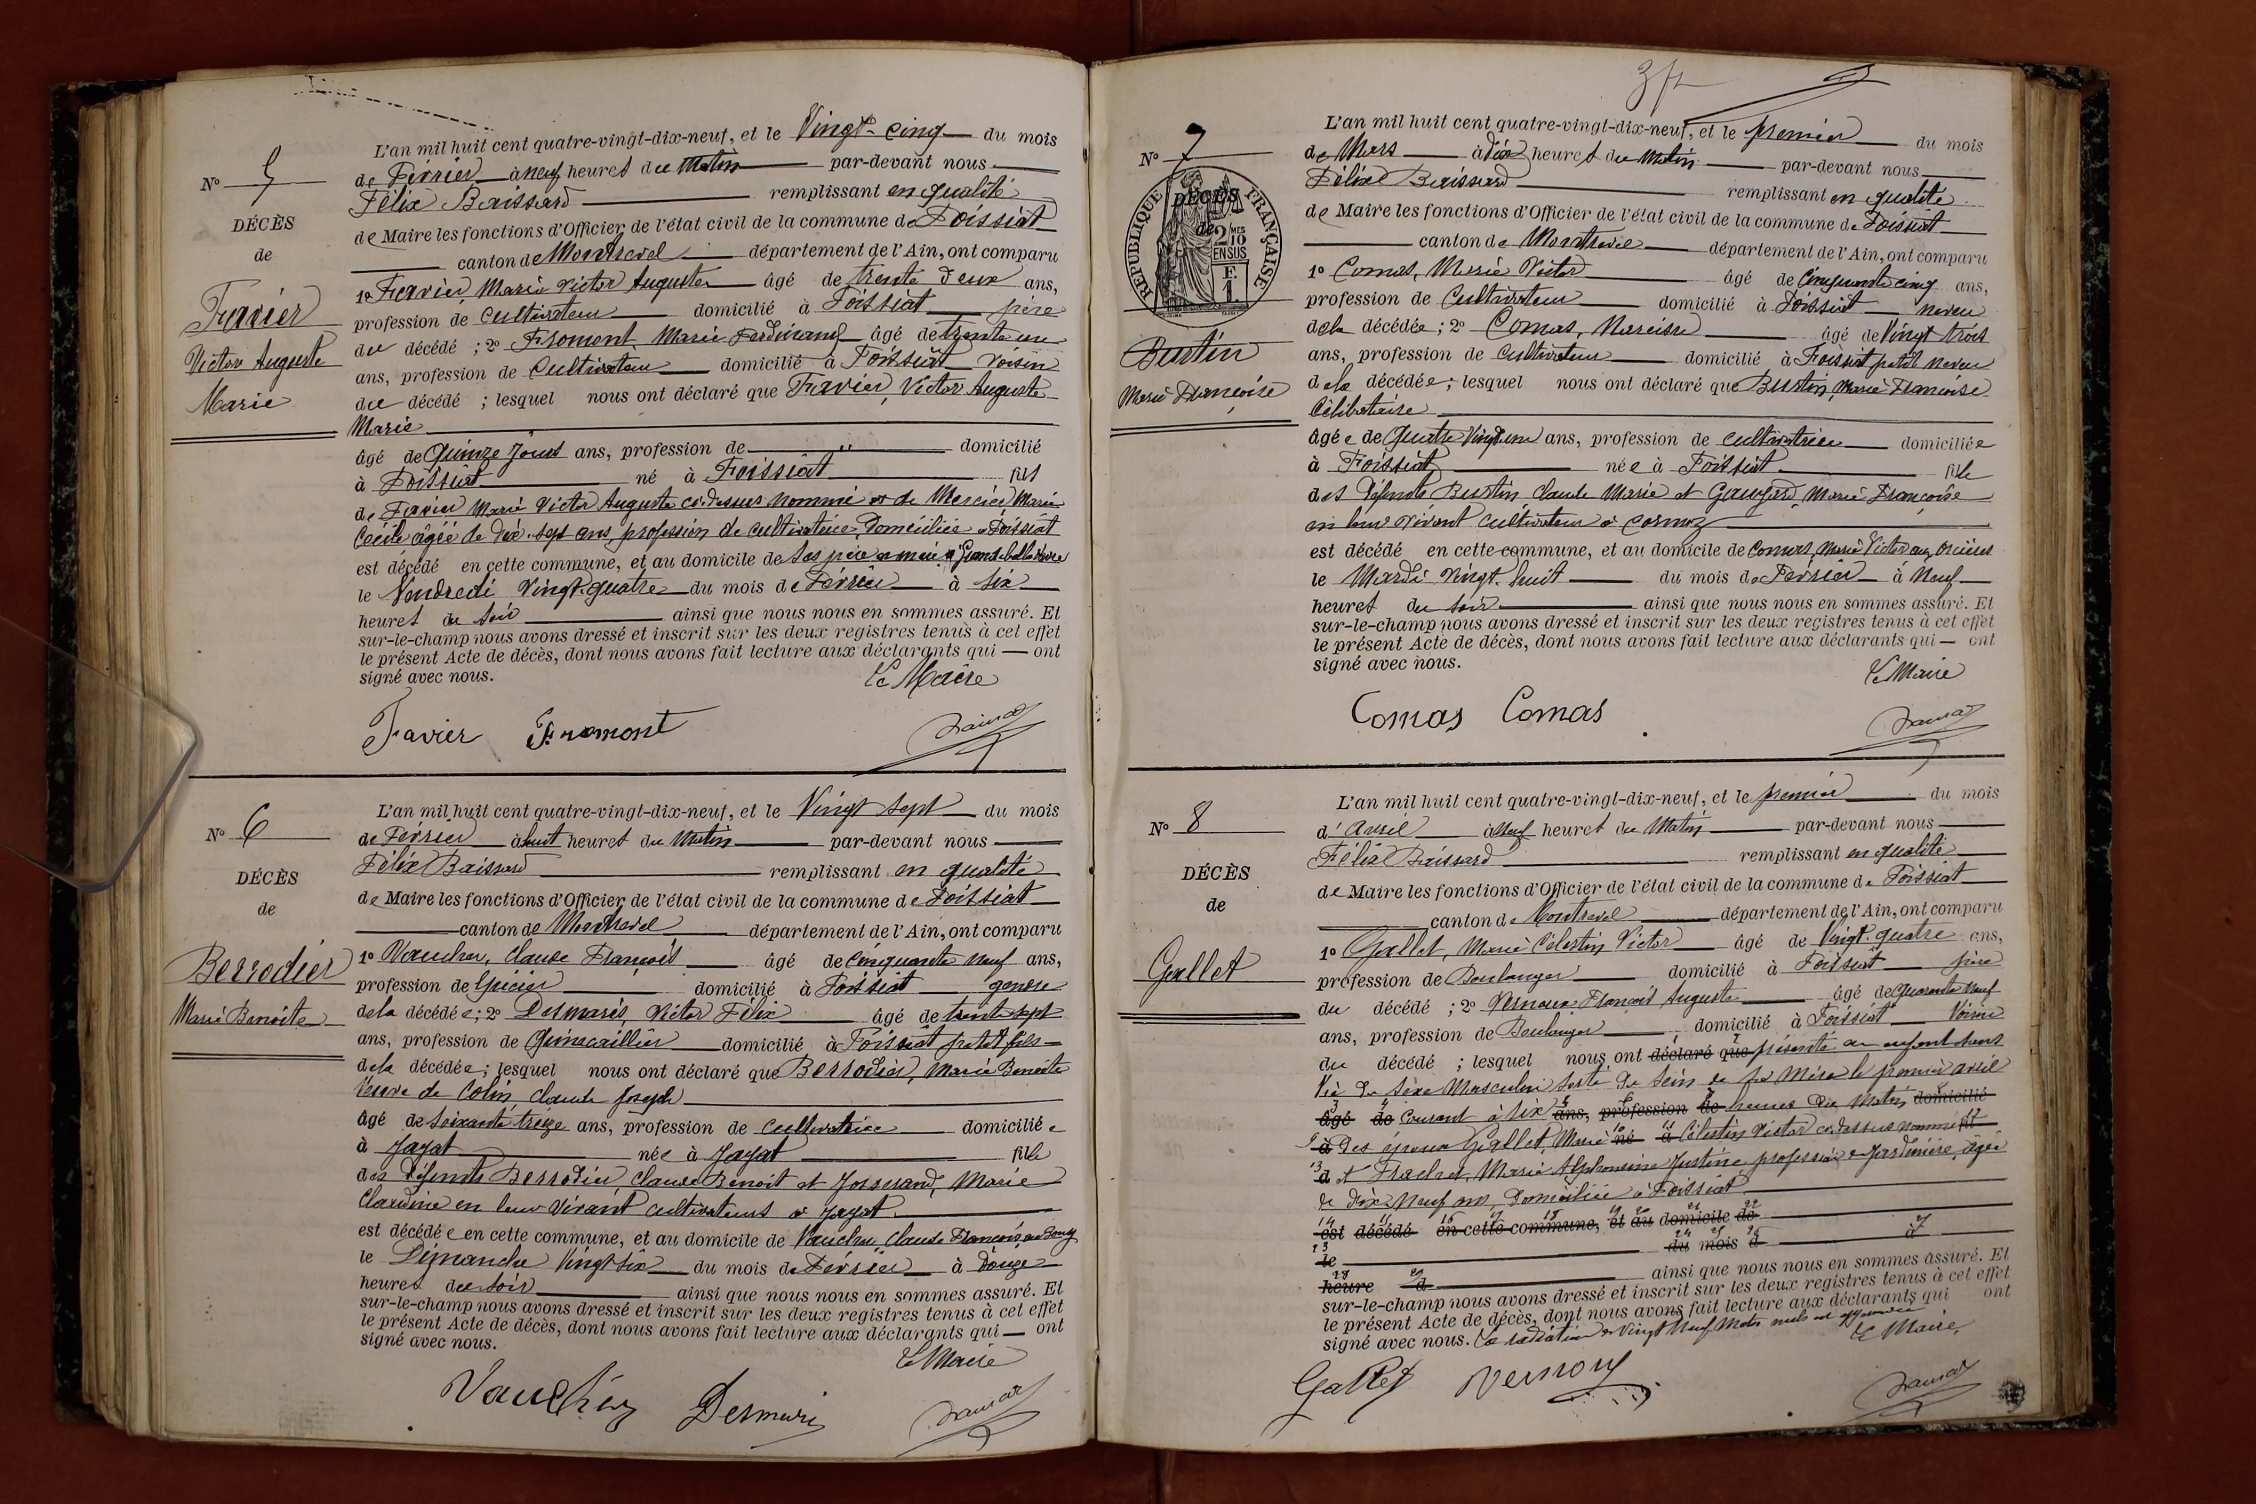 N° 5
DÉCÈS
de
Favier
Victor Auguste
Marie
L'an mil huit cent quatre-vingt-dix-neuf, et le Vingt-cinq du mois
de Février à neuf heures du Matin par-devant nous
Félix Baissard remplissant en qualité
de Maire les fonctions d'Officier de l'état civil de la commune de Foissiat
canton de Montrevel département de l'Ain, ont comparu
1° Favier, Marie Victor Auguste âgé de trente deux ans,
profession de Cultivateur domicilié à Foissiat père
du décédé ; 2° Fromont, Marie Ferdinand âgé de trente un
ans, profession de Cultivateur domicilié à Foissiat voisin
du décédé ; lesquel nous ont déclaré que Favier, Victor Auguste
Marie
âgé de Quinze jours ans, profession de " domicilié
à Foissiat né à Foissiat fils
de Favier Marie Victor Auguste ci-dessus nommé et de Mercier Marie
Cécile âgée de dix-sept ans profession de cultivatrice, Domiciliée à Foissiat
est décédé en cette commune, et au domicile de ses père et mère
le Vendredi Vingt-quatre du mois de Février à six
heures du soir ainsi que nous nous en sommes assuré. Et
sur-le-champ nous avons dressé et inscrit sur les deux registres tenus à cet effet
le présent Acte de décès, dont nous avons fait lecture aux déclarants qui — ont
signé avec nous.
Le Maire
Favier Fromont
N° 6
DÉCÈS
de
Berrodier
Marie Benoite
L'an mil huit cent quatre-vingt-dix-neuf, et le Vingt sept du mois
de Février à huit heures du Matin par-devant nous
Félix Baissard remplissant en qualité
de Maire les fonctions d'Officier de l'état civil de la commune de Foissiat
canton de Montrevel département de l'Ain, ont comparu
1° Vaucher, Claude François âgé de Cinquante neuf ans,
profession de Epicier domicilié à Foissiat gendre
de la décédée ; 2° Desmaris, Victor Félix âgé de trente sept
ans, profession de Quincaillier domicilié à Foissiat petit fils
de la décédée ; lesquel nous ont déclaré que Berrodier, Marie Benoite
Veuve de Colin Claude Joseph
âgé de soixante treize ans, profession de cultivatrice domiciliée
à Jayat née à Jayat fille
des Défunts Berrodier Claude Benoit et Josserand, Marie
Claudine en leur vivant cultivateurs à Jayat.
est décédée en cette commune, et au domicile de Vaucher Claude François au Bourg
le Dimanche Vingt six du mois de Février à Douze
heures du soir ainsi que nous nous en sommes assuré. Et
sur-le-champ nous avons dressé et inscrit sur les deux registres tenus à cet effet
le présent Acte de décès, dont nous avons fait lecture aux déclarants qui — ont
signé avec nous.
Le Maire
Vaucher Desmaris
N° 7
DÉCÈS
de
RÉPUBLIQUE FRANÇAISE
2 MES 10
EN SUS
F.
1.
Burtin
Marie Françoise
L'an mil huit cent quatre-vingt-dix-neuf, et le premier du mois
de Mars à dix heures du Matin par-devant nous
Félix Baissard remplissant en qualité
de Maire les fonctions d'Officier de l'état civil de la commune de Foissiat
canton de Montrevel département de l'Ain, ont comparu
1° Comas, Marie Victor âgé de Cinquante cinq ans,
profession de Cultivateur domicilié à Foissiat neveu
de la décédée ; 2° Comas, Narcisse âgé de Vingt trois
ans, profession de cultivateur domicilié à Foissiat petit neveu
de la décédée ; lesquel nous ont déclaré que Burtin, Marie Françoise
Célibataire
âgée de Quatre Vingt un ans, profession de cultivatrice domiciliée
à Foissiat née à Foissiat fille
des Défunts Burtin Claude Marie et Marie Françoise
en leur vivant cultivateurs à Cormoz
est décédé en cette commune, et au domicile de Comas, Marie Victor aux
le Mardi Vingt-huit du mois de Février à Neuf
heures du soir ainsi que nous nous en sommes assuré. Et
sur-le-champ nous avons dressé et inscrit sur les deux registres tenus à cet effet
le présent Acte de décès, dont nous avons fait lecture aux déclarants qui — ont
signé avec nous.
Le Maire
Comas Comas
N° 8
DÉCÈS
de
Gallet
L'an mil huit cent quatre-vingt-dix-neuf, et le premier du mois
d'Avril à Neuf heures du Matin par-devant nous
Félix Baissard remplissant en qualité
de Maire les fonctions d'Officier de l'état civil de la commune de Foissiat
canton de Montrevel département de l'Ain, ont comparu
1° Gallet, Marie Célestin Victor âgé de Vingt-quatre ans,
profession de Boulanger domicilié à Foissiat père
du décédé ; 2° Vernoux François Auguste âgé de Quarante Neuf
ans, profession de Boulanger domicilié à Foissiat Voisin
du décédé ; lesquel nous ont déclaré que présenté un enfant sans
Vie du sexe Masculin sorti du sein de sa Mère le premier avril
âgé de Courant à six ans, profession de heures du Matin domicilié
à Des époux Gallet, Marie né à Célestin Victor ci-dessus nommé fil
d et Frachet, Marie Alphonsine Justine profession de Jardinière, âgée
de Dix Neuf ans Domiciliée à Foissiat
est décédé en cette commune, et au domicile de
le du mois d à
heure d ainsi que nous nous en sommes assuré. Et
sur-le-champ nous avons dressé et inscrit sur les deux registres tenus à cet effet
le présent Acte de décès, dont nous avons fait lecture aux déclarants qui ont
signé avec nous. La radiation de Vingt Neuf Mots nuls est approuvée
Le Maire,
Gallet Vernoux